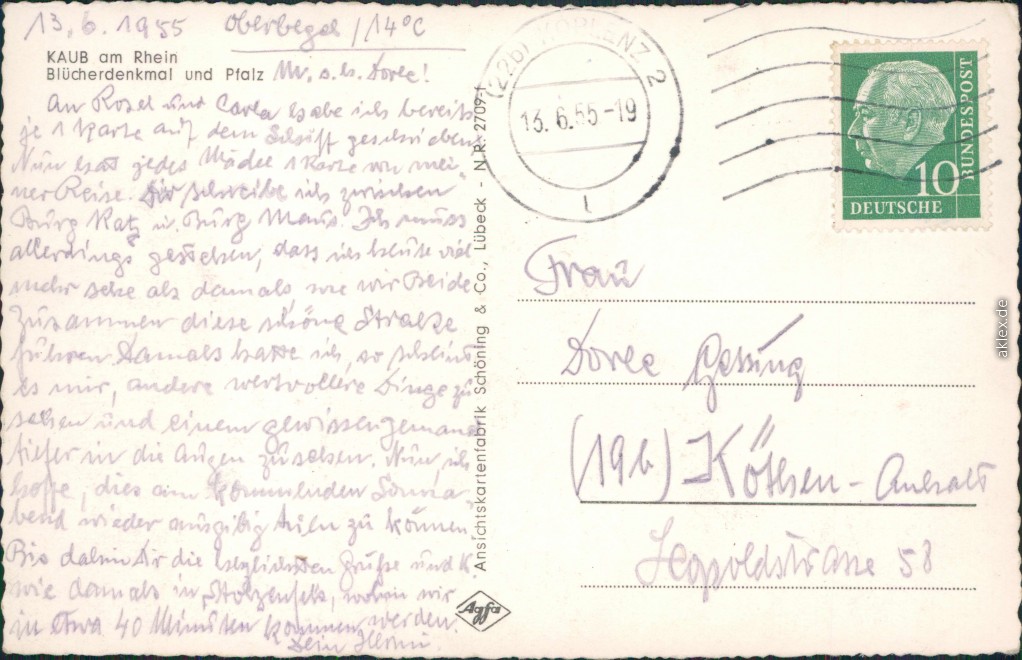 13.6.1955
14°C
KAUB am Rhein
Blücherdenkmal und Pfalz
M. s. l. Dorle!
An Rosel und Carla habe ich bereits
je 1 Karte auf dem Schiff geschrieben
Nun hat jedes Mädel 1 Karte von mei-
ner Reise. Dir schreibe ich zwischen
Burg Katz u. Burg Maus. Ich muss
allerdings gestehen, dass ich heute viel
mehr sehe als damals wie wir Beide
zusammen diese schöne Straße
fuhren. Damals hatte ich, so scheint
es mir, andere wertvollere Dinge zu
sehen und einem gewissen jemand
tiefer in die Augen zu sehen. Nun ich
hoffe, dies am kommenden Sonna
bend wieder ausgiebig tun zu können
Bis dahin Dir die herzlichsten Grüße und K.
wie damals in Stolzenfels, wohin wir
in etwa 40 Minuten kommen werden.
Dein
Ansichtskartenfabrik Schöning & Co., Lübeck - NR. 2709-1
Agfa
(22b) KOBLENZ 2
13.6.55-19
10
DEUTSCHE
BUNDESPOST
Frau
Dorle
(19b) Köthen-Anhalt
Leopoldstrasse 58
aklex.de